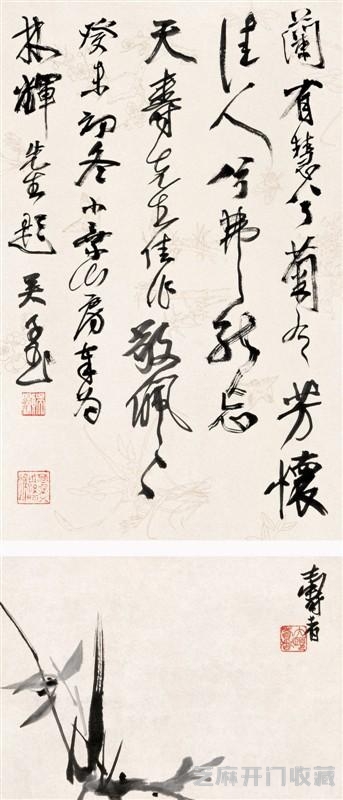 蘭有慧兮菊有芳懷
佳人兮弗能忘
天壽先生佳作敬佩〻
癸未初冬小山房奉為
林輝先生題 吳
壽者
芝麻开门收藏